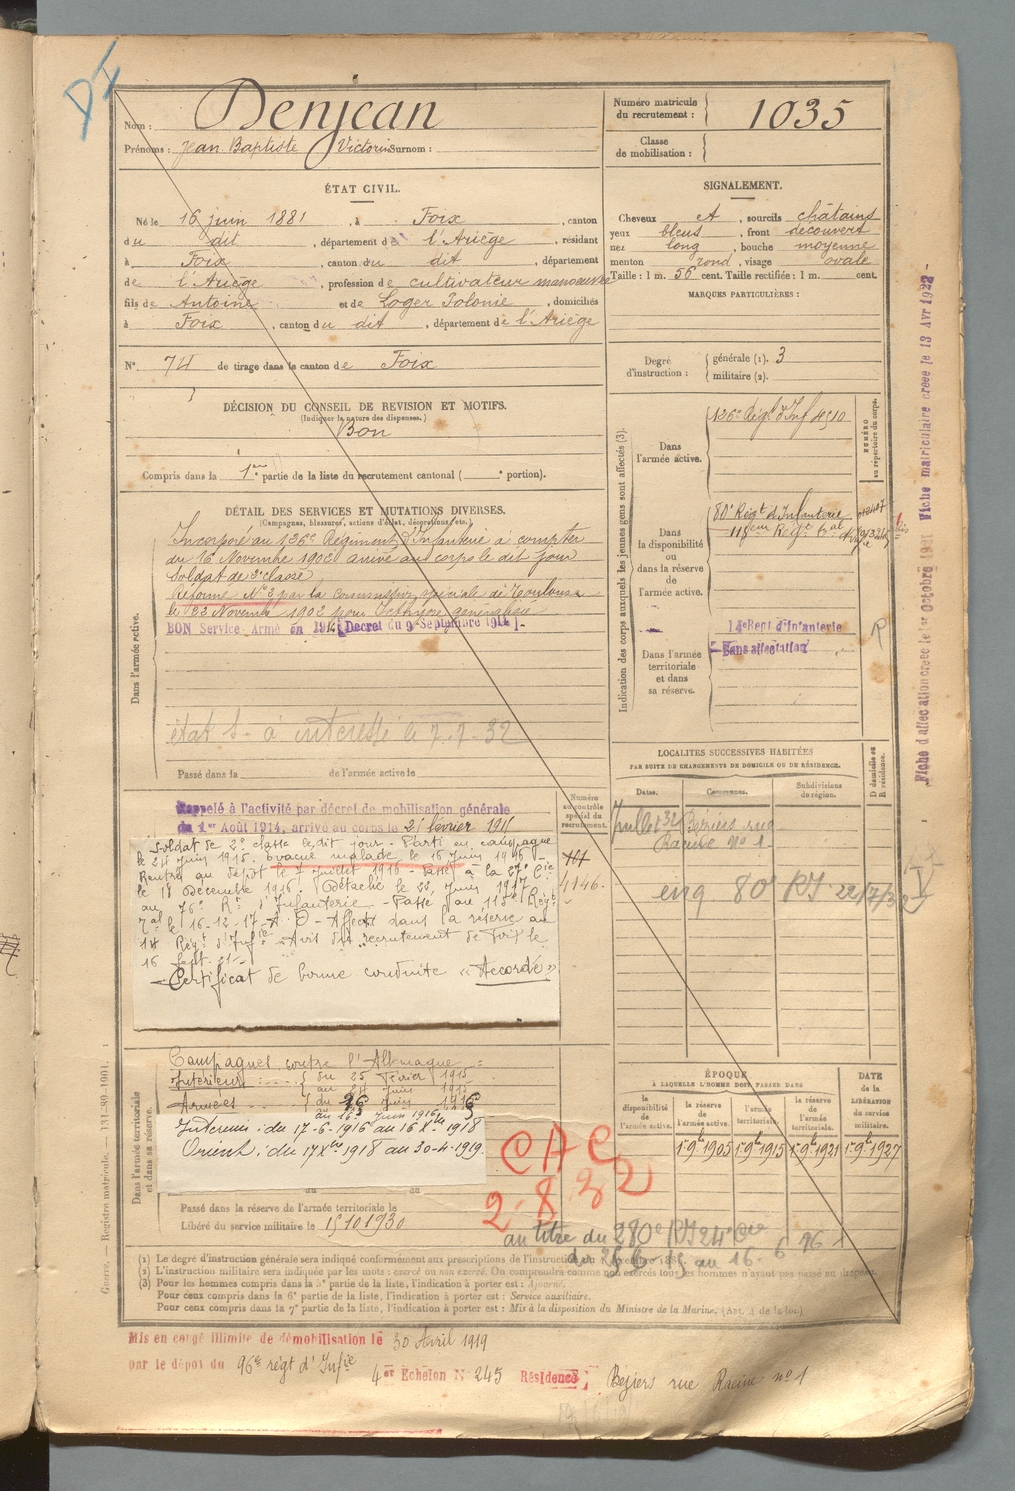 Nom : Denjean
Prénoms : Jean Baptiste Victorin Surnom :
Numéro matricule du recrutement : 1035
Classe de mobilisation :
ÉTAT CIVIL.
Né le 16 juin 1881, à Foix, canton
du dit, département de l'Ariège, résidant
à Foix, canton du dit, département
de l'Ariège, profession de cultivateur manoeuvre
fils de Antoine et de Loger Polonie, domiciliés
à Foix, canton du dit, département de l'Ariège
N° 74 de tirage dans le canton de Foix
SIGNALEMENT.
Cheveux et, sourcils châtains
yeux bleus, front découvert
nez long, bouche moyenne
menton rond, visage ovale
Taille : 1 m. 56 cent. Taille rectifiée : 1 m. cent.
MARQUES PARTICULIÈRES :
Degré d'instruction : générale (1). 3
militaire (2).
DÉCISION DU CONSEIL DE REVISION ET MOTIFS.
(Indiquer la nature des dispenses.)
Bon
Compris dans la 1ere partie de la liste du recrutement cantonal ( e portion).
DÉTAIL DES SERVICES ET MUTATIONS DIVERSES.
(Campagnes, blessures, actions d'éclat, décorations, etc.)
Dans l'armée active.
Incorporé au 126e Régiment d'Infanterie à compter
du 16 Novembre 1902 arrivé au corps le dit jour
Soldat de 2e classe
Réformé N° 2 par la commission spéciale de Toulouse
le 22 Novembre 1902 pour
BON Service Armé en 1914 [Decret du 9 Septembre 1914].
état S. à intéressé le 7-7-32
Passé dans la de l'armée active le
Indication des corps auxquels les jeunes gens sont affectés (3).
NUMÉRO au répertoire du corps.
Dans l'armée active.
126e Régt d'Inf
Dans la disponibilité ou dans la réserve de l'armée active.
80e Régt d'Infanterie
115eme Régt
Dans l'armée territoriale et dans sa réserve.
14eRegt d'Infanterie
Sans affectation
Fiche d'affectation créée le 1er Octobre 1921 Fiche matriculaire créée le 13 Avr 1922
Rappelé à l'activité par décret de mobilisation générale
du 1er Août 1914, arrivé au corps le 25 février 1915
Soldat de 2e classe ledit jour - Parti en campagne
le 24 Juin 1915. Evacué malade le 16 Juin 1916 -
Rentré au dépôt le 7 Juillet 1916 - Passé à la 27e Cie
le 18 Décembre 1916. Détaché le 22 Juin 1917
au 76e R. d'Infanterie - Passé au 115e Régt
le 16-12-17 - Affecté dans la réserve au
14 Régt d'Infie - Avis du recrutement de Foix le
16 Sept. 21 -
- Certificat de bonne conduite « Accordé »
Numéro au contrôle spécial du recrutement.
4146.
LOCALITÉS SUCCESSIVES HABITÉES
PAR SUITE DE CHANGEMENTS DE DOMICILE OU DE RÉSIDENCE.
Dates. Communes. Subdivisions de région. D domicile ou R résidence.
Juillet 32 Béziers rue
Racine n° 1
enq 80e RI 22/7/32
Dans l'armée territoriale et dans sa réserve.
Campagnes contre l'Allemagne :
Intérieur : du 25 février 1915
au 24 Juin 1915
Armées du 26 Juin 1916
au 16 Juin 1916
Intérieur : du 17-6-1916 au 16 Xbre 1918
Orient : du 17 Xbre 1918 au 30-4-1919.
Passé dans la réserve de l'armée territoriale le
Libéré du service militaire le 15 10 1930
ÉPOQUE
À LAQUELLE L'HOMME DOIT PASSER DANS
la disponibilité de l'armée active. la réserve de l'armée active. l'armée territoriale. la réserve de l'armée territoriale.
DATE de la LIBÉRATION du service militaire.
1er 9bre 1905 1er 9bre 1915 1er 9bre 1921 1er 9bre 1927
CAC
2-8-32
au titre du 280e RI 24e Cie
du 26 6-15 au 16-6 96
(1) Le degré d'instruction générale sera indiqué conformément aux prescriptions de l'instruction du
(2) L'instruction militaire sera indiquée par les mots : exercé ou non exercé. On comprendra comme non exercés tous les hommes n'ayant pas passé au drapeau.
(3) Pour les hommes compris dans la 5e partie de la liste, l'indication à porter est : Ajourné.
Pour ceux compris dans la 6e partie de la liste, l'indication à porter est : Service auxiliaire.
Pour ceux compris dans la 7e partie de la liste, l'indication à porter est : Mis à la disposition du Ministre de la Marine. (Art. 4 de la loi.)
Guerre. — Registre matricule. — 131-89-1901.
Mis en congé illimité de démobilisation le 30 Avril 1919
par le dépôt du 96e régt d'Infie
4er Echelon N° 245 Résidence : Béziers rue Racine n° 1